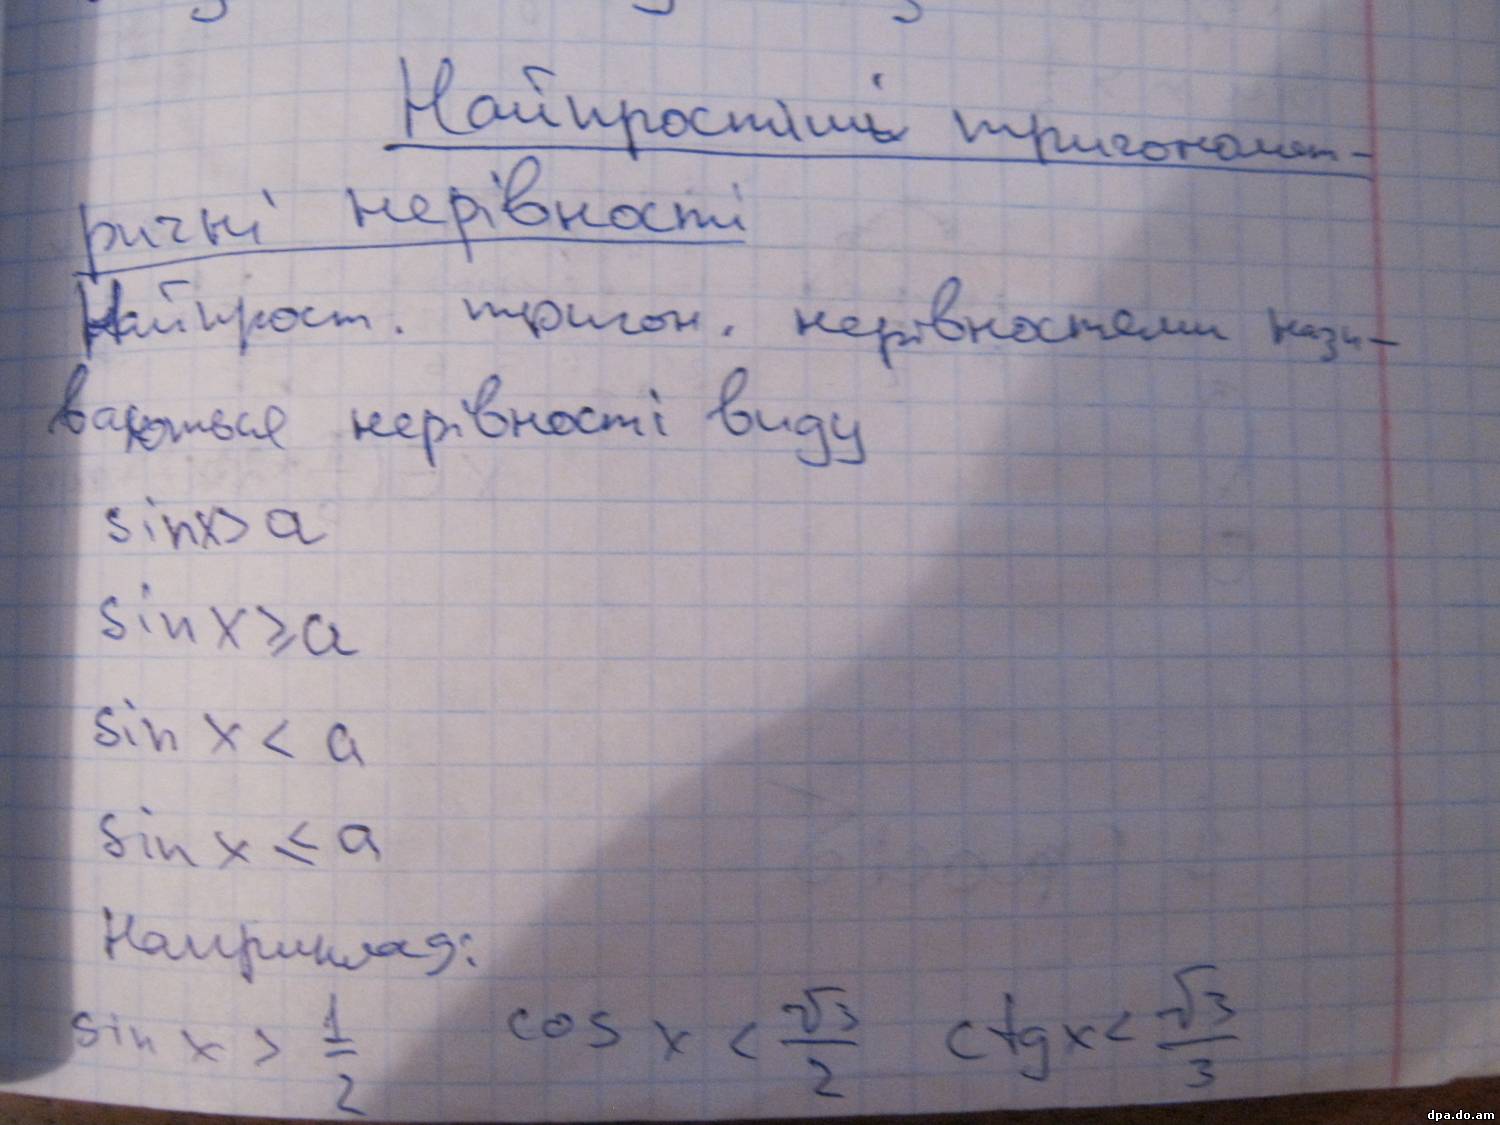 Найпростіші тригономет-
ричні нерівності
Найпрост. тригон. нерівностями нази-
ваються нерівності виду
sin x > a
sin x ⩾ a
sin x < a
sin x ⩽ a
Наприклад:
sin x > 1/2 cos x < √3/2 ctg x < √3/3
dpa.do.am